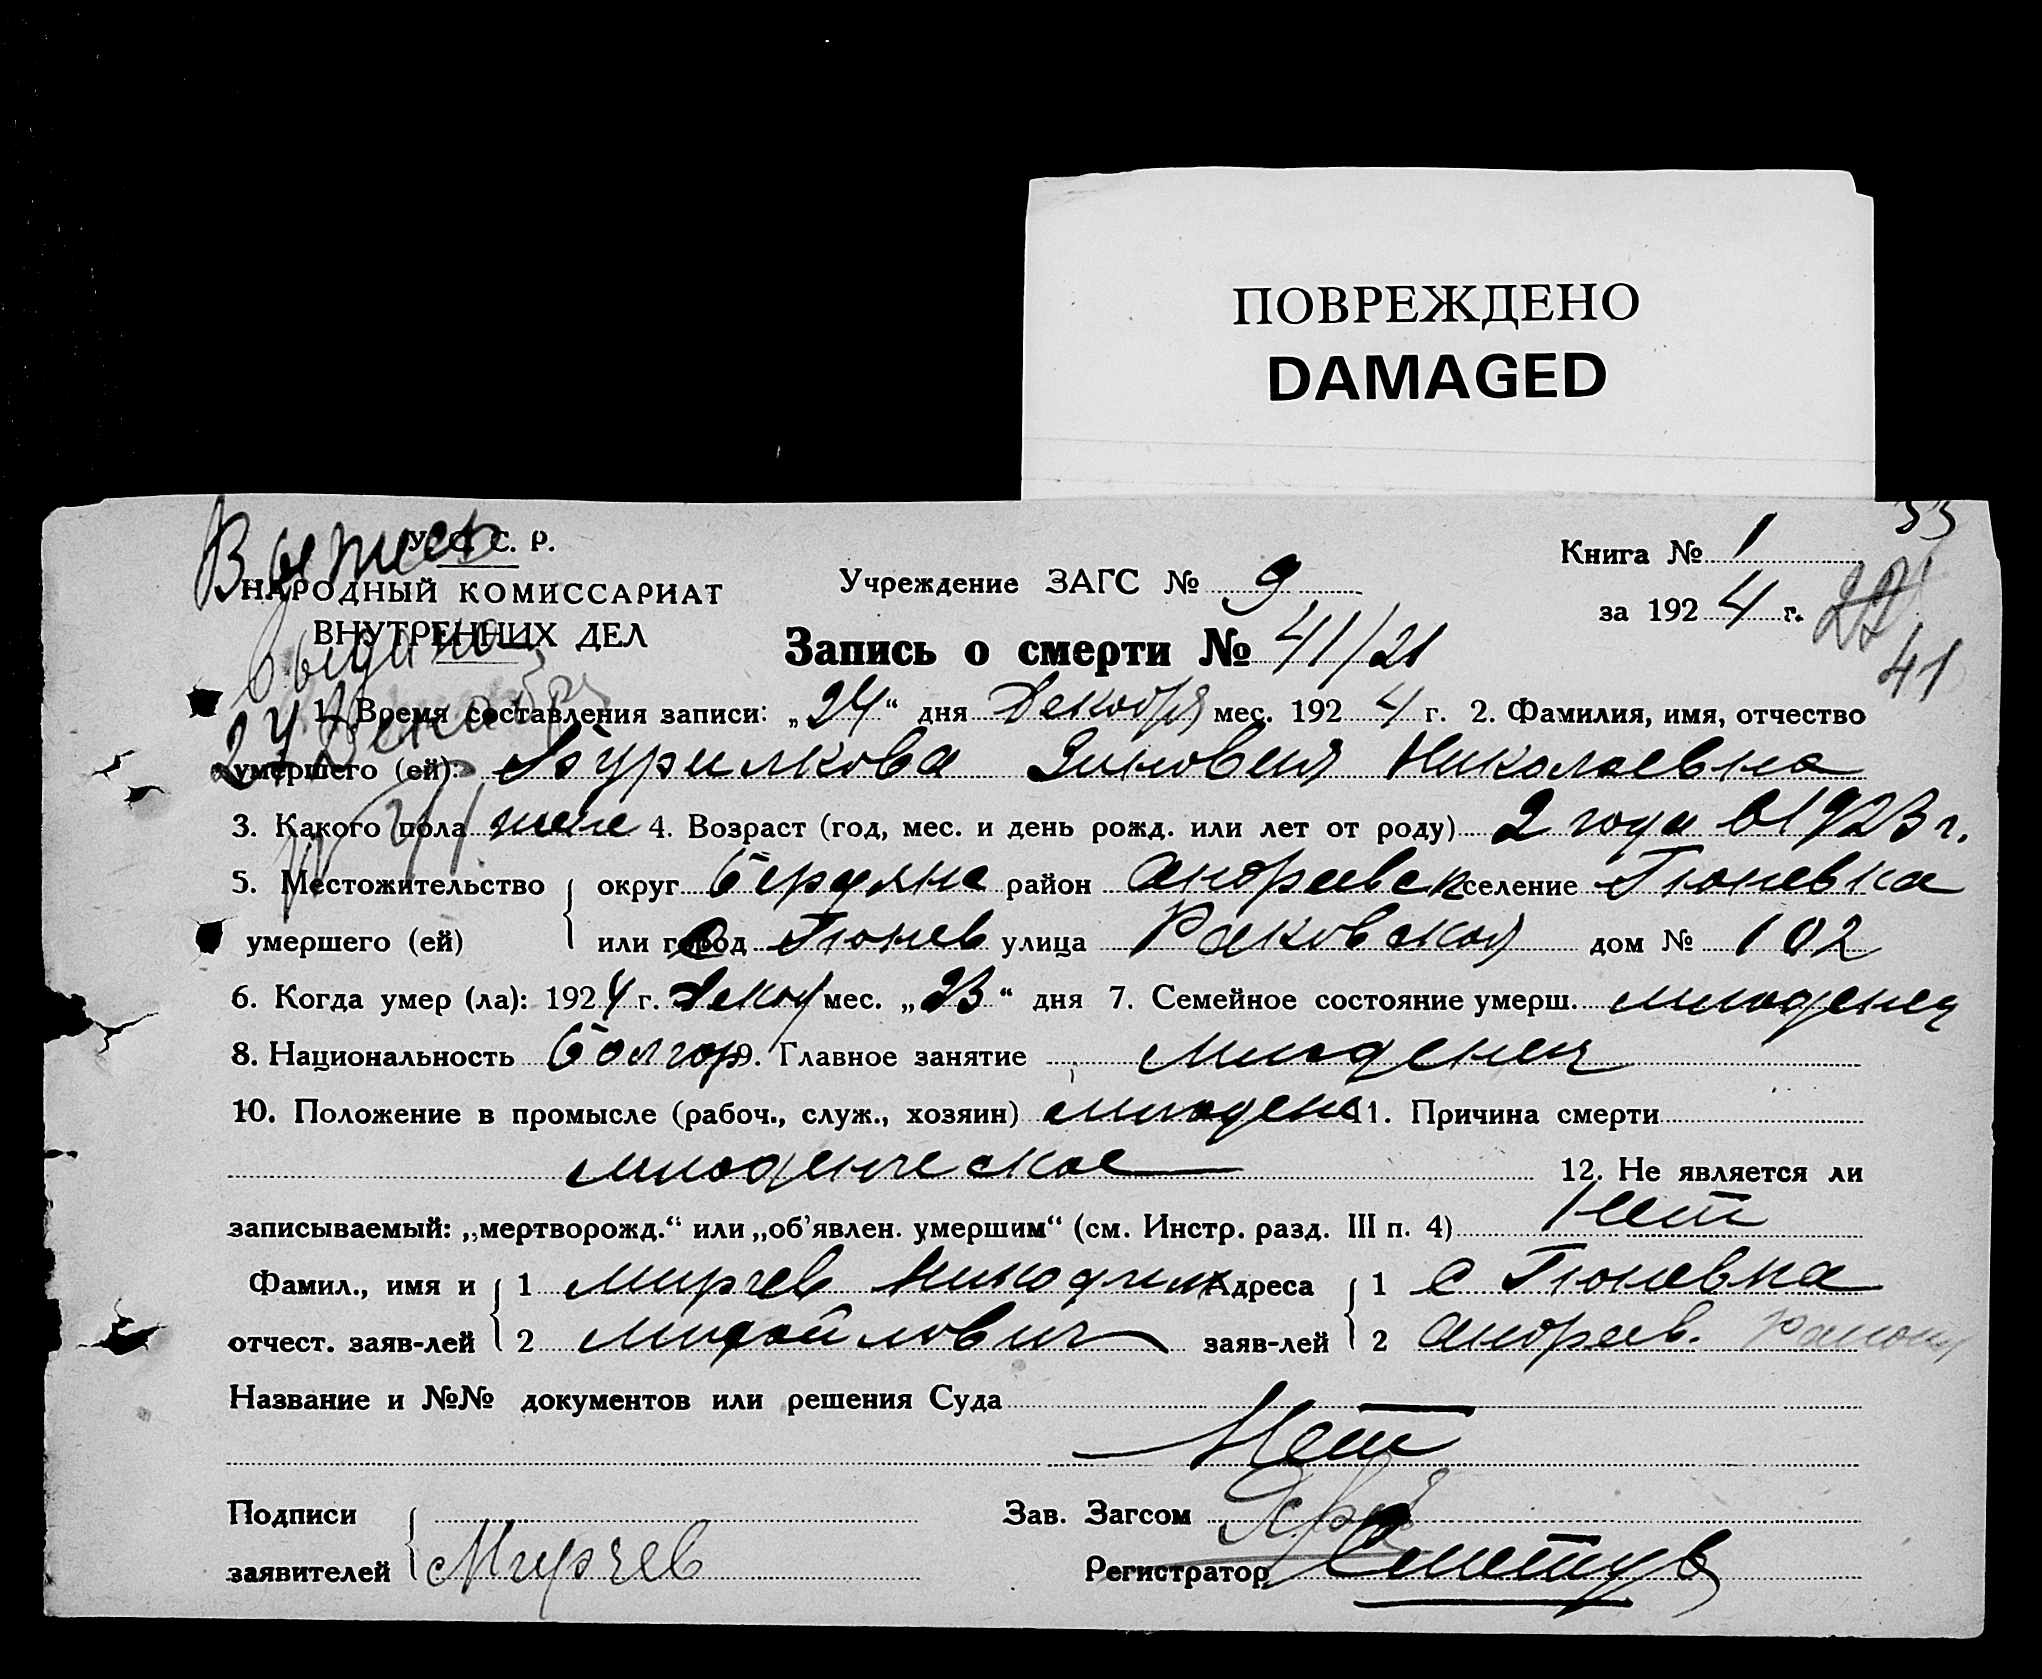 ПОВРЕЖДЕНО
DAMAGED
33
У. С. С. Р.
НАРОДНЫЙ КОМИССАРИАТ
ВНУТРЕННИХ ДЕЛ
Выпись
выдана
24 Декабря
Учреждение ЗАГС № 9
Книга № 1
за 1924 г.
41
Запись о смерти № 41/21
1. Время составления записи: „24“ дня Декабря мес. 1924 г. 2. Фамилия, имя, отчество
умершего (ей): Бурилкова Зиновия Николаевна
3. Какого пола жене 4. Возраст (год, мес. и день рожд. или лет от роду) 2 года в 1923 г.
5. Местожительство округ Бердянс район Андреевск селение Гюневка
умершего (ей) или город с Гюнев улица Раковской дом № 102
6. Когда умер (ла): 1924 г. Декаб мес. „23“ дня 7. Семейное состояние умерш. младенец
8. Национальность болгар 9. Главное занятие младенец
10. Положение в промысле (рабоч., служ., хозяин) младенец 11. Причина смерти
младенческое 12. Не является ли
записываемый: „мертворожд.“ или „об'явлен. умершим“ (см. Инстр. разд. III п. 4) Нет
Фамил., имя и 1 Мирчев Никодим Адреса 1 с Гюневка
отчест. заяв-лей 2 Михайлович заяв-лей 2 Андреев. района
Название и №№ документов или решения Суда
Нет
Подписи Зав. Загсом
заявителей Мирчев Регистратор